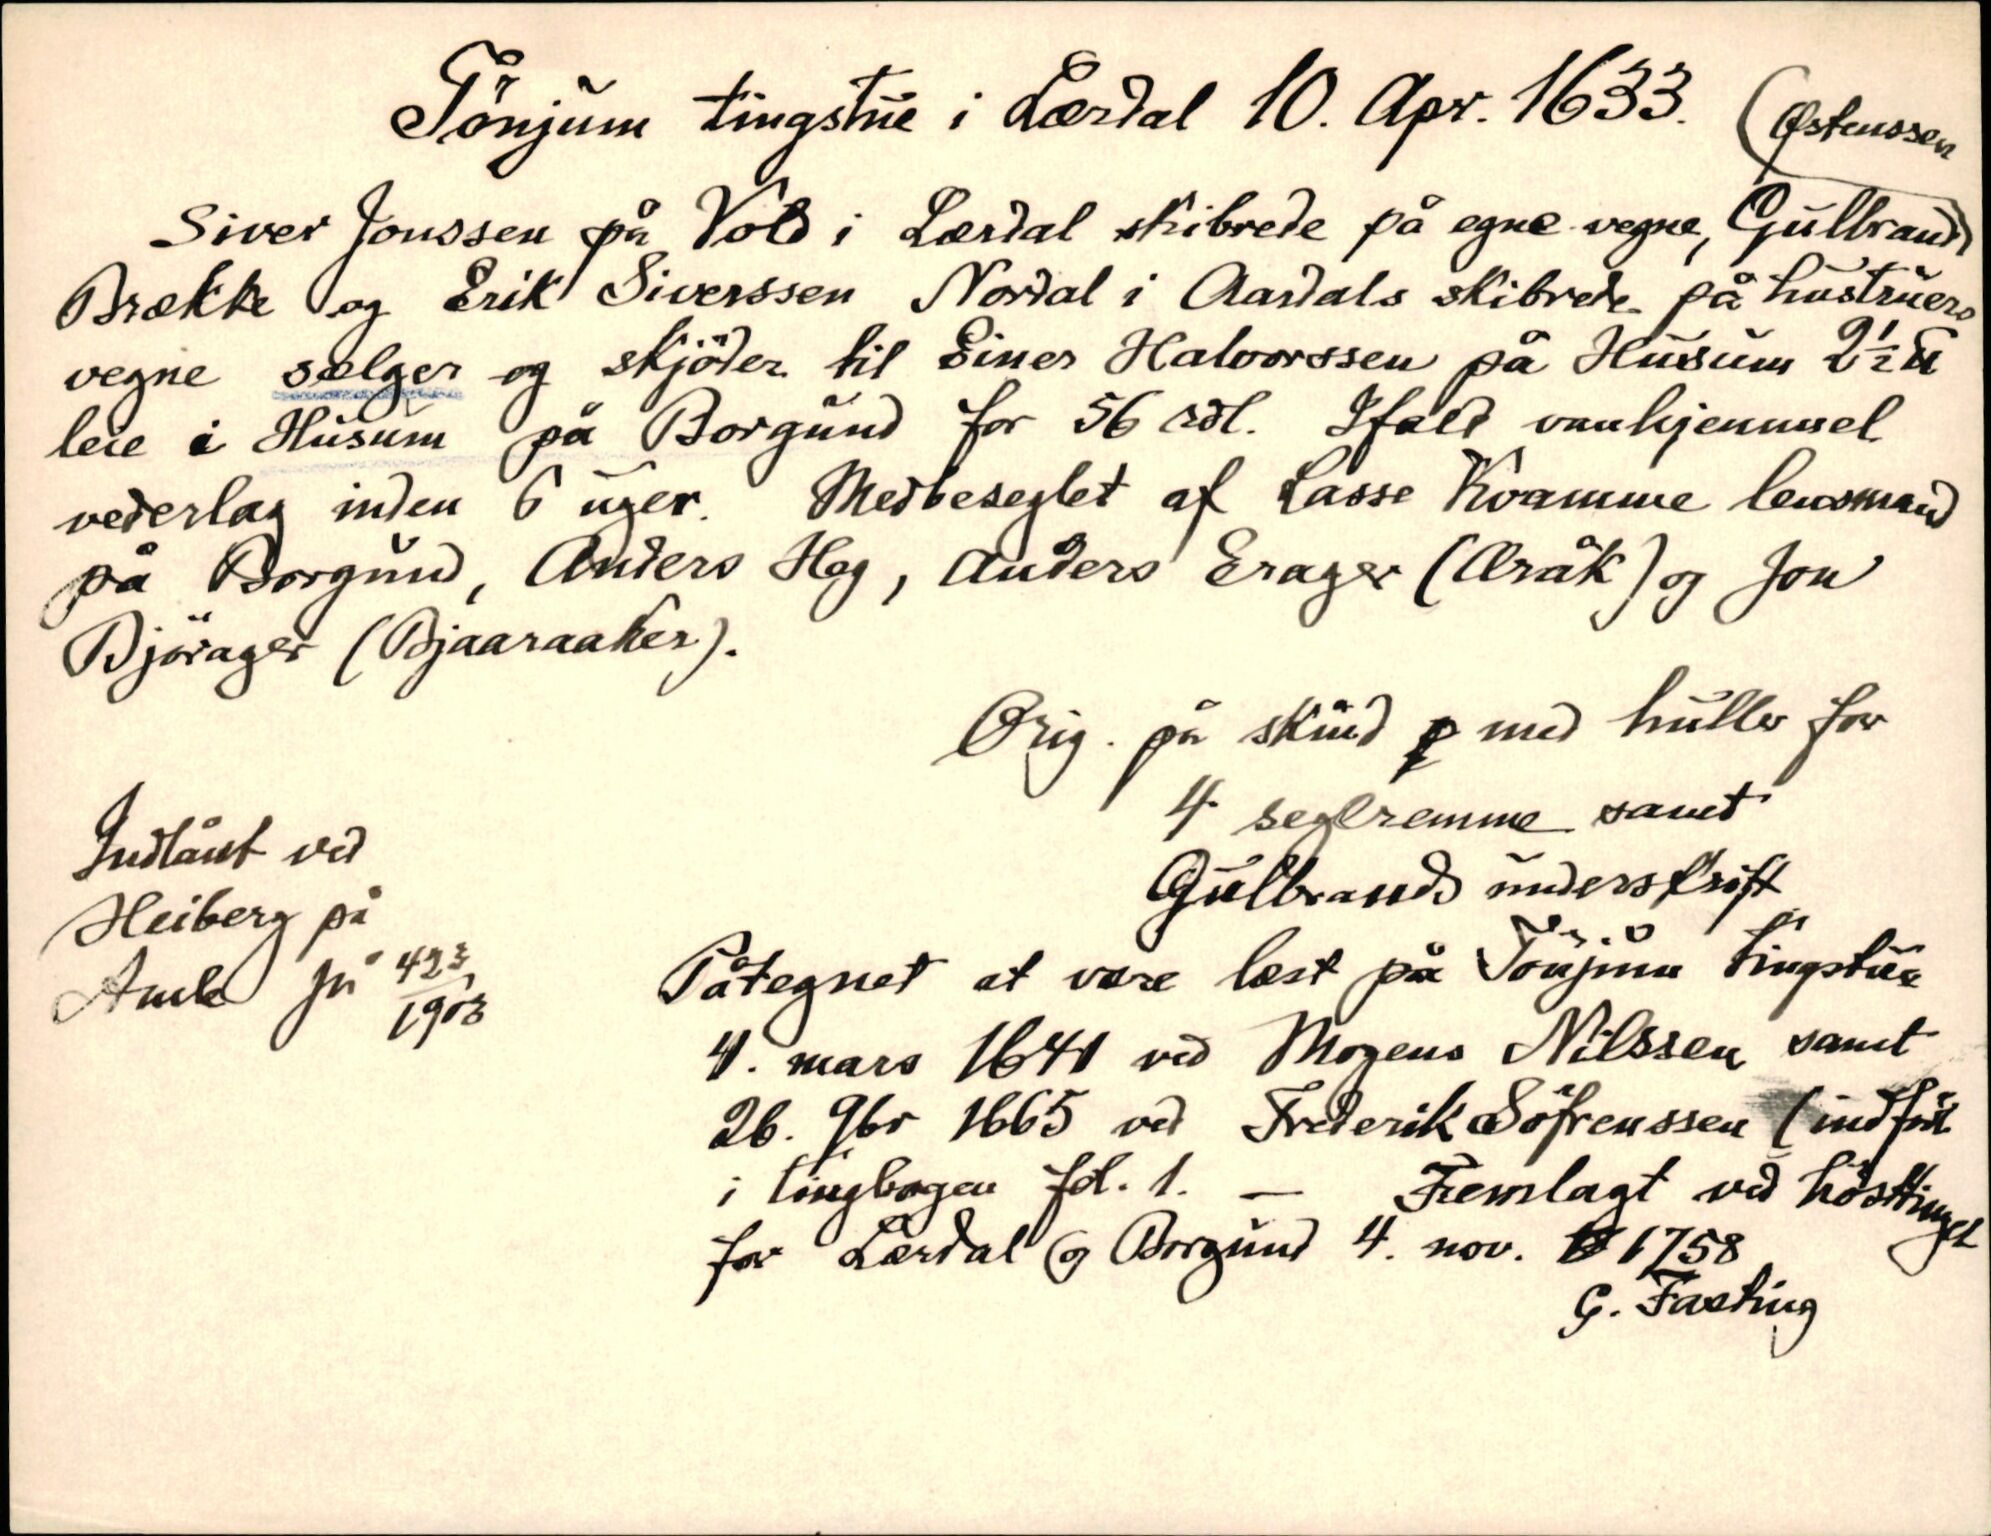 Tönjum tingstue i Lærdal 10. Apr. 1633.
(Østenssen
Siver Jonssen på Vold i Lærdal skibrede på egne vegne, Gulbrand)
Brække og Erik Siverssen Nordal i Aardals skibrede på hustruers
vegne sælger og skjöder til Einer Halvorssen på Husum 2½
leie i Husum på Borgund for 56 rdl. Ifald vanhjemmel
vederlag inden 6 uger. Medbeseglet af Lasse Kvamme lensmand
på Borgund, Anders Heg, Anders Erager (Æråk) og Jon
Björager (Bjaaraaker).
Orig. på skind med huller for
4 seglremme samt
Gulbrands underskrift
Indlånt ved
Heiberg på
Amle Jn 423/1903
Påtegnet at være læst på Tönjum tingstue
4. mars 1641 ved Mogens Nilssen samt
26. 9br 1665 ved Frederik Söfrenssen (indført
i tingbogen fol. 1. — Fremlagt ved hösttinget
for Lærdal og Borgund 4. nov. 1758
G. Fasting